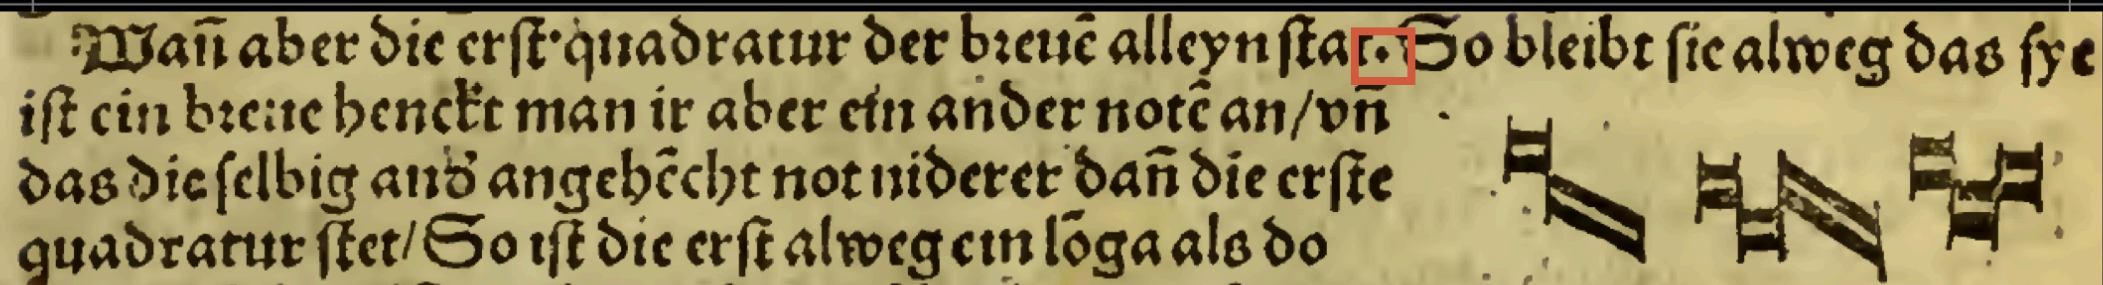 Wan̄ aber die erſt quadratur der breuē alleyn ſtat. So bleibt ſie alweg das ſye
iſt ein breue henckt man ir aber ein ander notē an/vn̄
das die ſelbig and̕ angehēcht not niderer dan̄ die erſte
quadratur ſtet/ So iſt die erſt alweg ein lōga als do